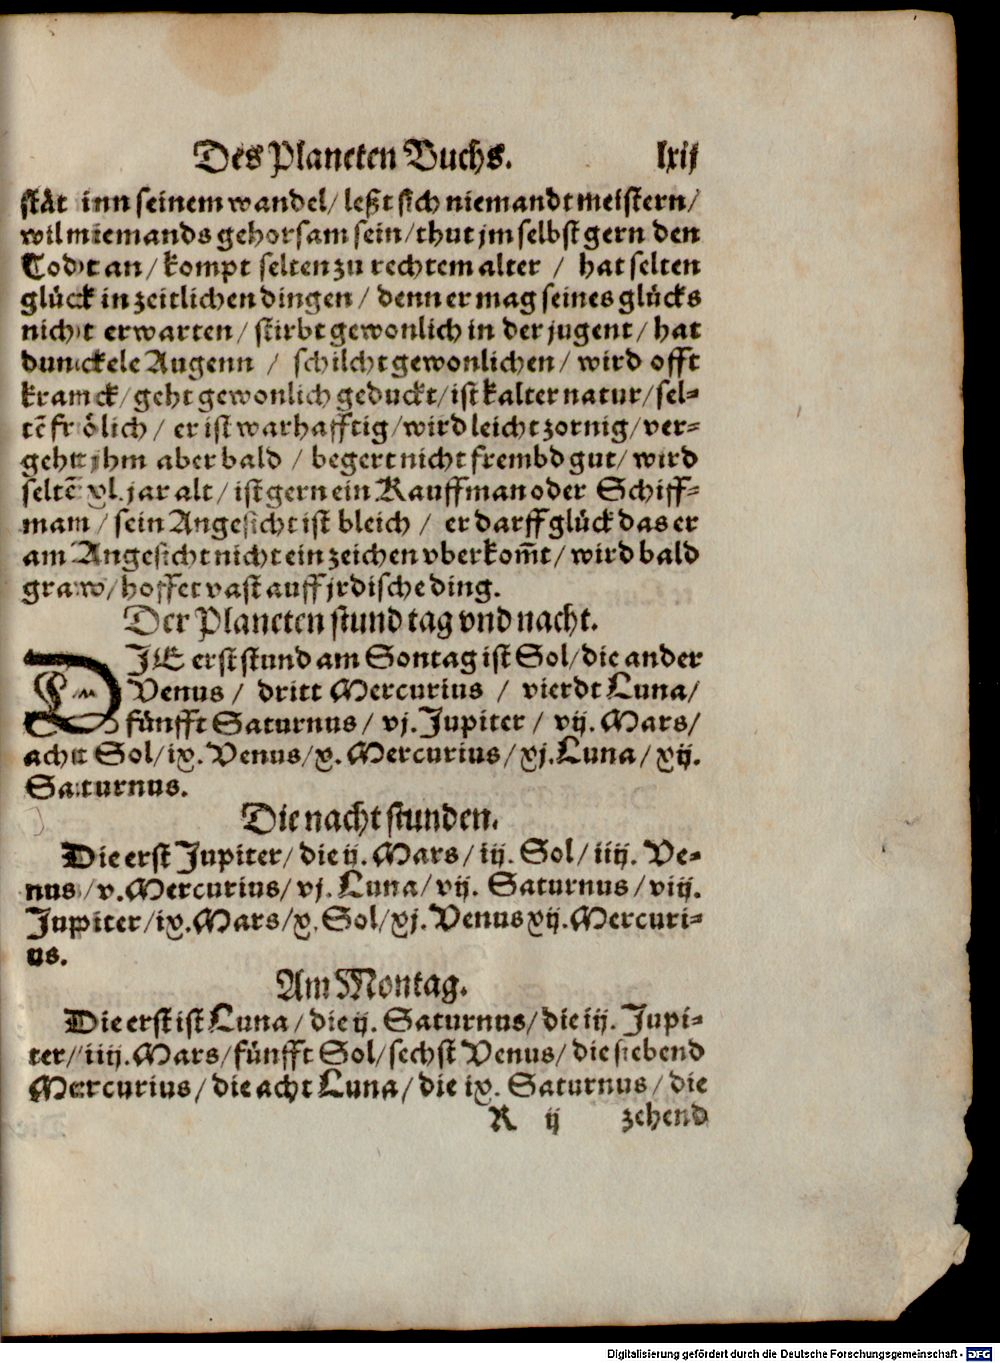 Des Planeten Buchs. lxij
stät inn seinem wandel/ leßt sich niemandt meistern/
wil niemands gehorsam sein/ thut jm selbst gern den
Todt an/ kompt selten zu rechtem alter / hat selten
glück in zeitlichen dingen / denn er mag seines glücks
nicht erwarten/ stirbt gewonlich in der jugent/ hat
dunckele Augenn / schilcht gewonlichen/ wird offt
kranck/ geht gewonlich geduckt/ ist kalter natur/ sel-
tē frölich / er ist warhafftig/ wird leicht zornig/ ver-
geht jhm aber bald / begert nicht frembd gut/ wird
seltē xl. jar alt/ ist gern ein Kauffman oder Schiff-
man / sein Angesicht ist bleich / er darff glück das er
am Angesicht nicht ein zeichen vberkom̄t/ wird bald
graw/ hoffet vast auff jrdische ding.
Der Planeten stund tag vnd nacht.
DJE erst stund am Sontag ist Sol/ die ander
Venus / dritt Mercurius / vierdt Luna/
fünfft Saturnus/ vj. Jupiter / vij. Mars/
acht Sol/ ix. Venus/ x. Mercurius/ xj. Luna/ xij.
Saturnus.
Die nacht stunden.
Die erst Jupiter/ die ij. Mars/ iij. Sol/ iiij. Ve-
nus/ v. Mercurius/ vj. Luna/ vij. Saturnus/ viij.
Jupiter/ ix. Mars/ x. Sol/ xj. Venus xij. Mercuri-
us.
Am Montag.
Die erst ist Luna/ die ij. Saturnus/ die iij. Jupi-
ter/ iiij. Mars/ fünfft Sol/ sechst Venus/ die siebend
Mercurius/ die acht Luna/ die ix. Saturnus/ die
K ij zehend
Digitalisierung gefördert durch die Deutsche Forschungsgemeinschaft - DFG